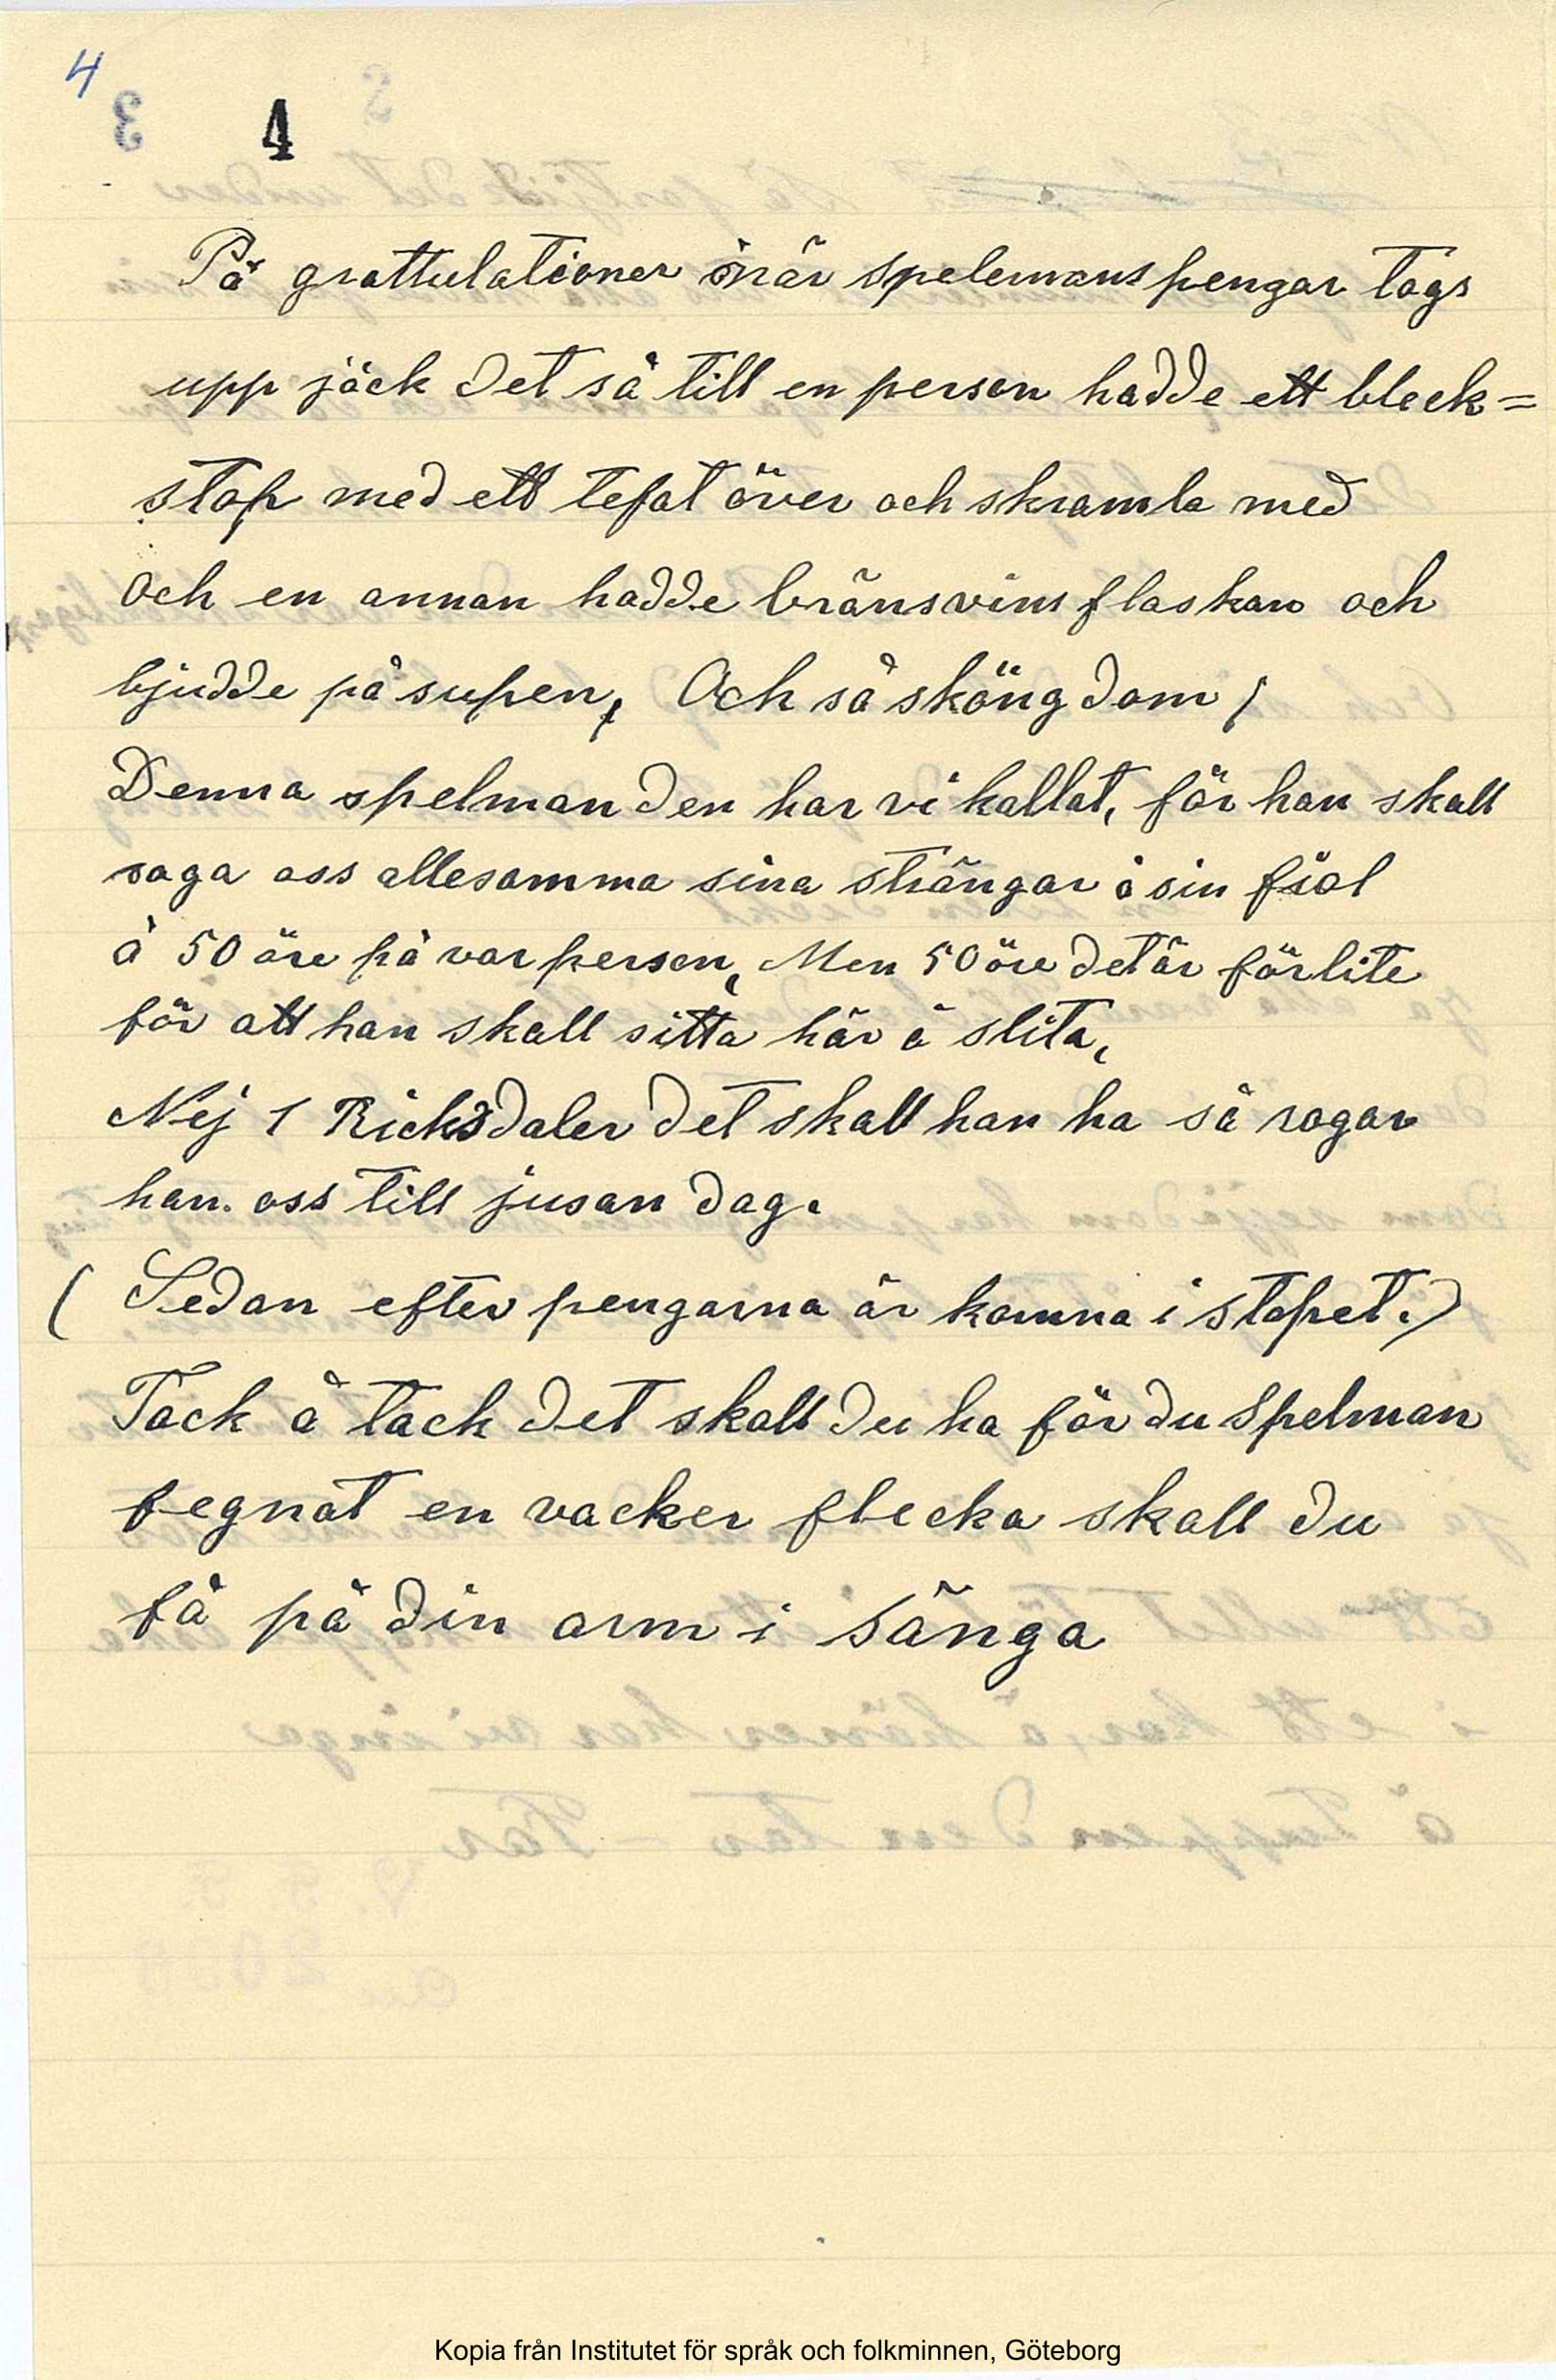 4
4
På grattulationer när spelemanspengar togs
upp jäck det så till en person hadde ett bleck=
stop med ett tefat över och skramla med
Och en annan hadde bränsvinsflaskan och
bjudde på supen, Och så sköng dom /
Denna spelman den har vi kallat, för han skall
raga oss allesamma sina strängar å sin fiol
à 50 öre på var person, Men 50 öre det är för lite
för att han skall sitta här å slita,
Nej 1 Ricksdaler det skall han ha så ragar
han. oss till jusan dag.
( Sedan efter pengarna är komna i stopet.)
Tack å tack det skall du ha för du Spelman
fegnat en vacker flecka skall du
få på din arm i sänga
Kopia från Institutet för språk och folkminnen, Göteborg